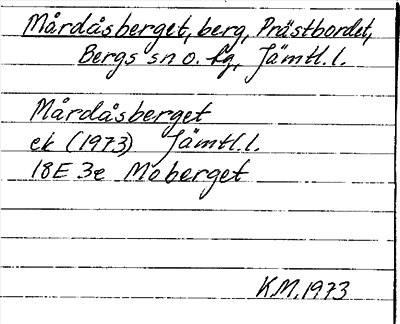 Mårdåsberget, berg, Prästbordet,
Bergs sn o. kg, Jämtl.l.
Mårdåsberget
ek (1973) Jämtl.l.
18E 3e Moberget
KM. 1973